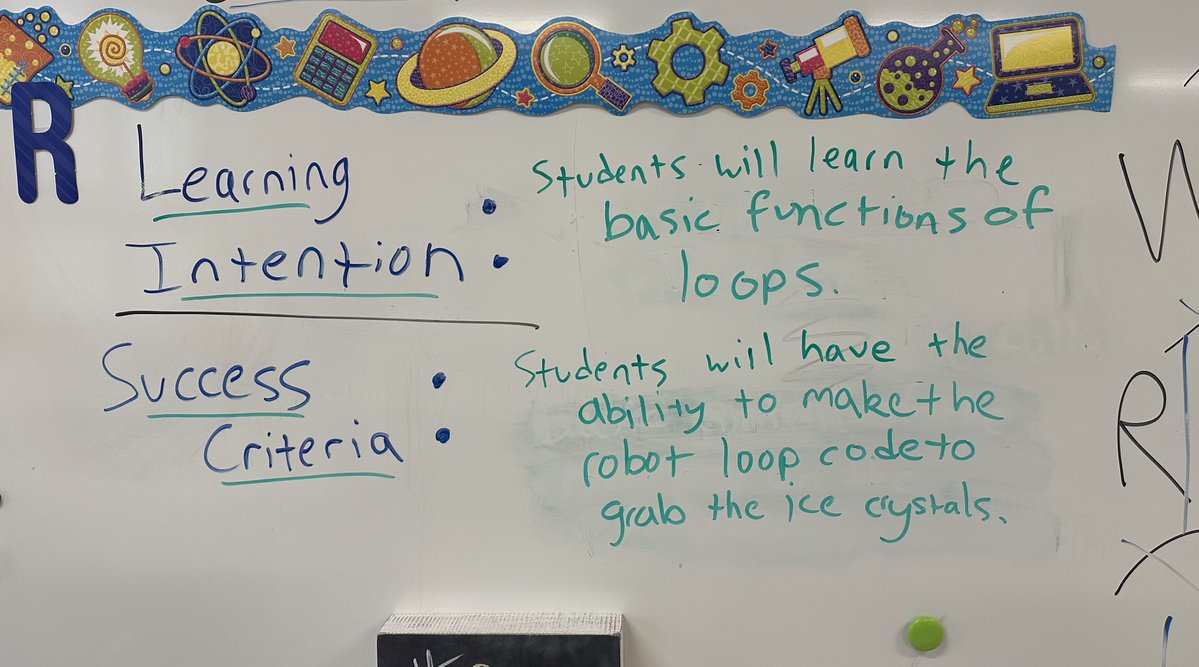 R
Learning
Intention :
Students will learn the
basic functions of
loops.
Success
Criteria :
Students will have the
ability to make the
robot loop code to
grab the ice crystals.
W
R